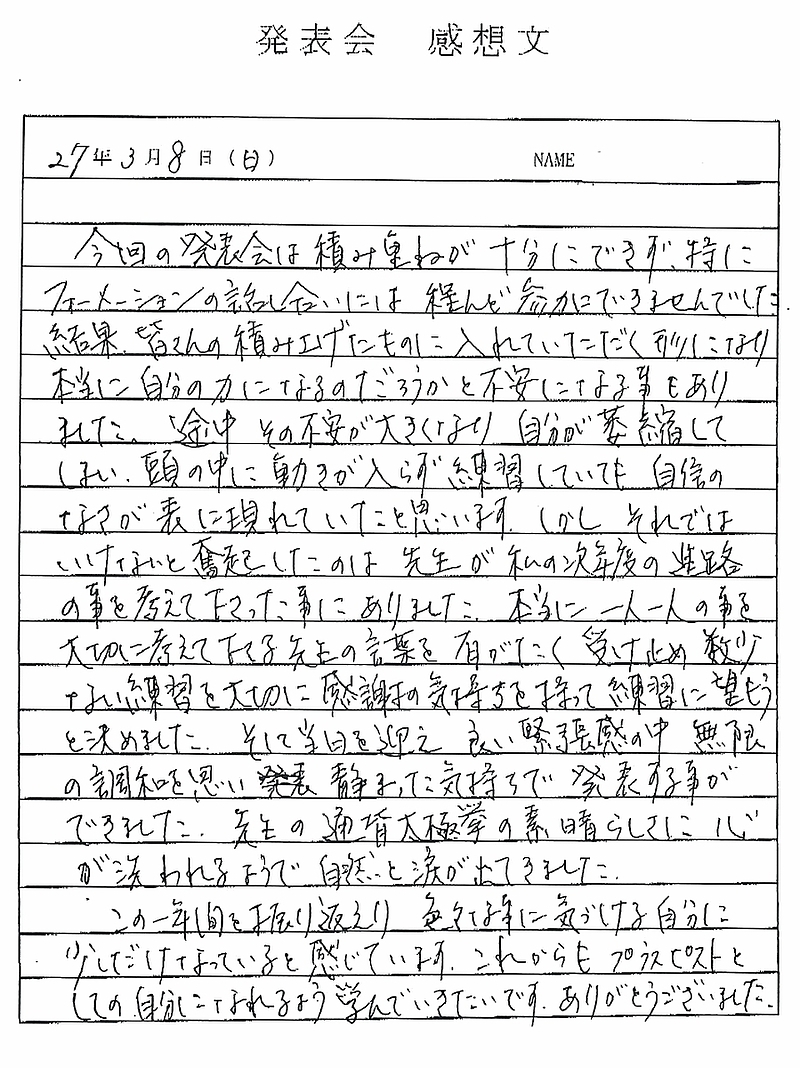 発表会 感想文
27年3月8日(日) NAME
今回の発表会は積み重ねが十分にできず、特に
フォーメーションの話し合いには殆んど参加できませんでした。
結果、皆さんの積み上げたものに入れていただく形になり
本当に自分の力になるのだろうかと不安になる事もあり
ました。途中その不安が大きくなり自分が萎縮して
しまい、頭の中に動きが入らず練習していても自信の
なさが表に現れていたと思います。しかしそれでは
いけないと奮起したのは先生が私の次年度の進路
の事を考えて下さった事にありました。本当に一人一人の事を
大切に考えて下さる先生の言葉を有がたく受け止め数少
ない練習を大切に感謝の気持ちを持って練習に望もう
と決めました。そして当日を迎え良い緊張感の中無限
の調和を思い静まった気持ちで発表する事が
できました。先生の通背太極拳の素晴らしさに心
が洗われるようで自然と涙が出てきました。
この一年間を振り返えり色々な事に気づける自分に
少しだけなっていると感じています。これからもプラスピストと
しての自分になれるよう学んでいきたいです。ありがとうございました。